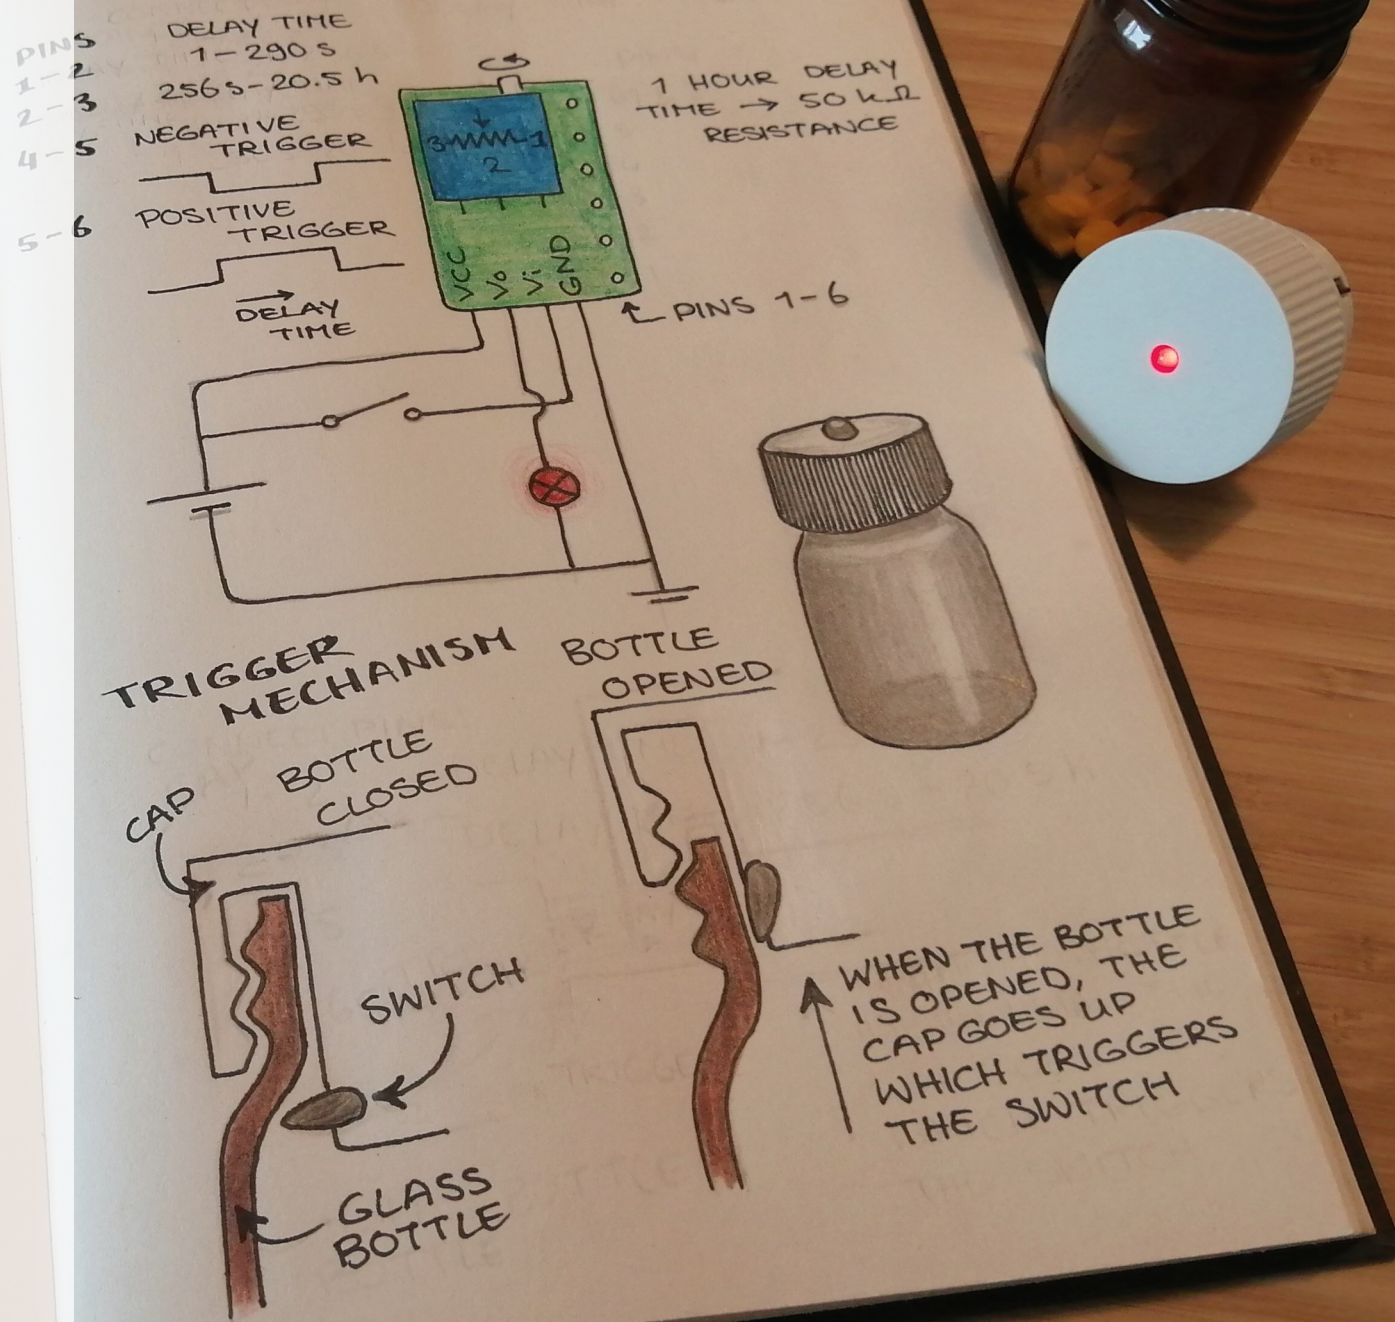 PINS DELAY TIME
1-2 1-290 s
2-3 256s-20.5 h
4-5 NEGATIVE
TRIGGER
5-6 POSITIVE
TRIGGER
DELAY
TIME
3 1
2
VCC
Vo
Vi
GND
1 HOUR DELAY
TIME → 50 kΩ
RESISTANCE
PINS 1-6
TRIGGER
MECHANISM
BOTTLE
OPENED
CAP
BOTTLE
CLOSED
SWITCH
GLASS
BOTTLE
WHEN THE BOTTLE
IS OPENED, THE
CAP GOES UP
WHICH TRIGGERS
THE SWITCH